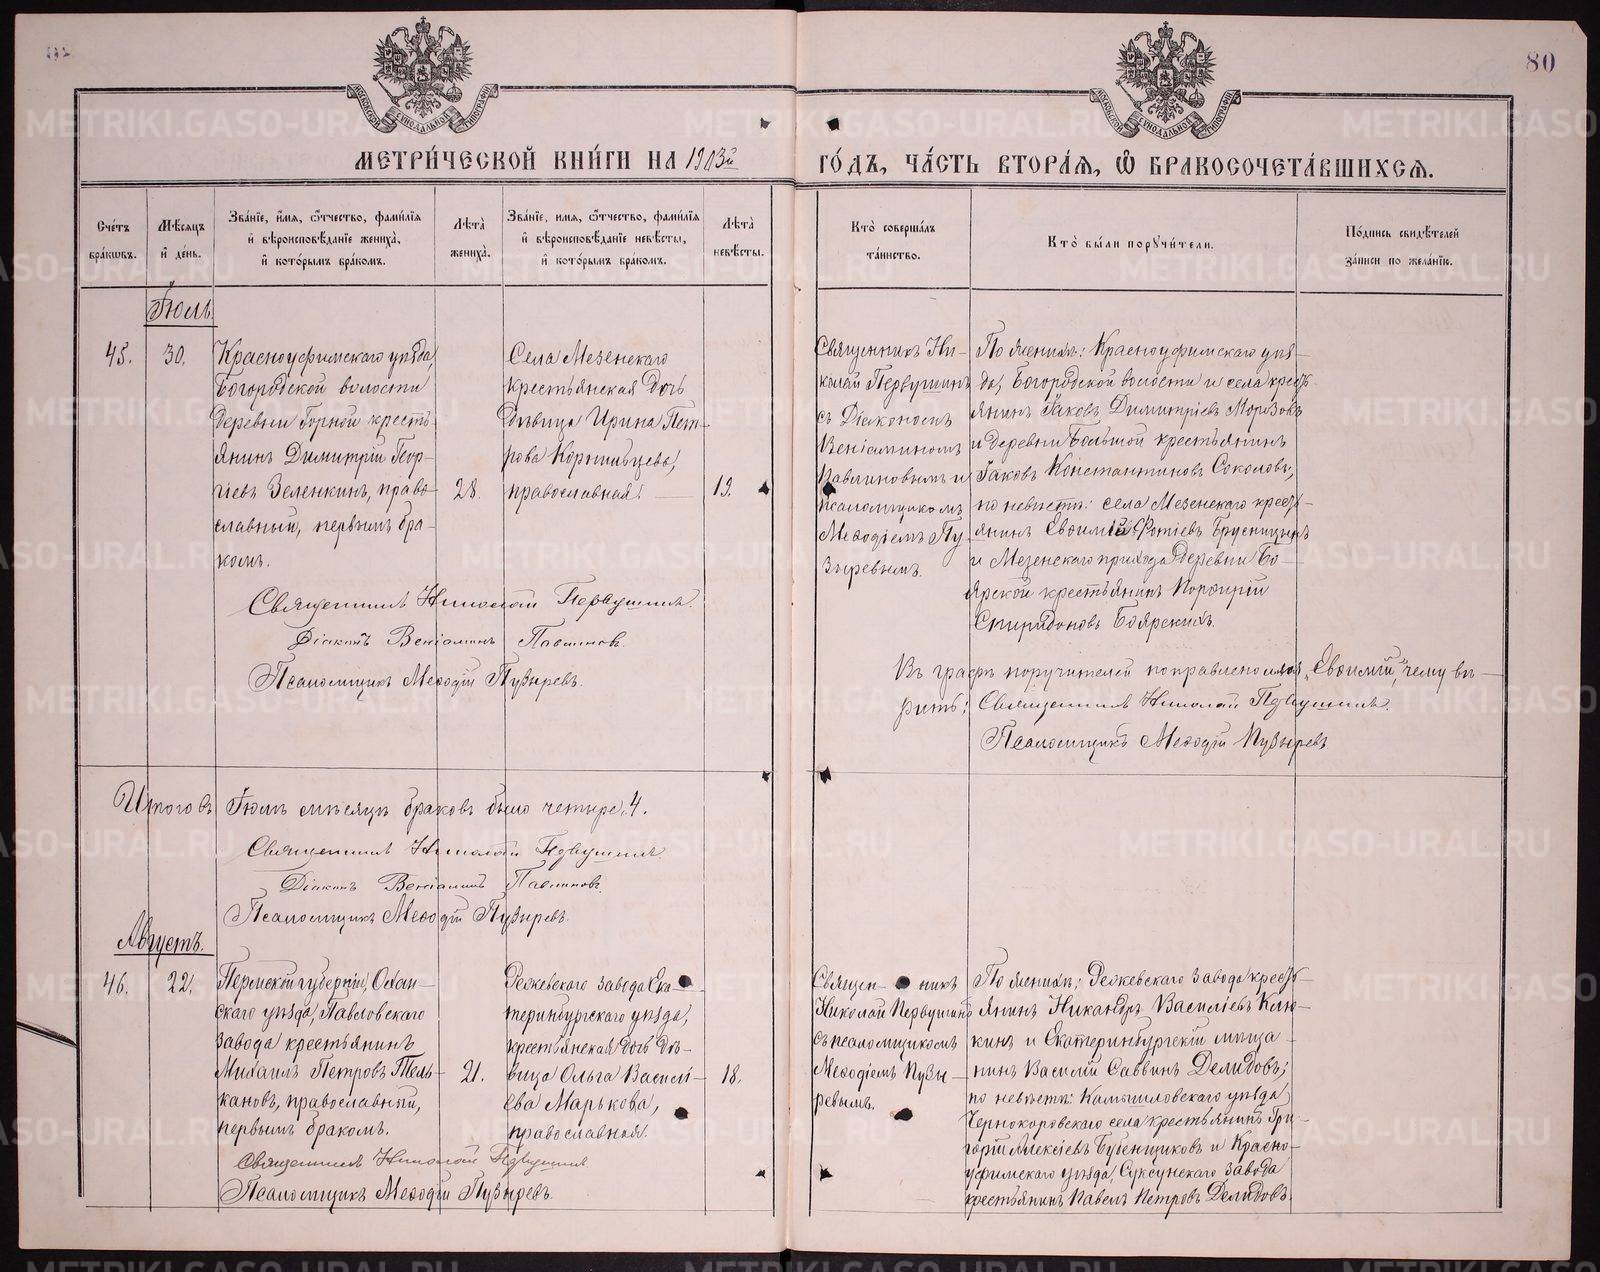 80
МЕТРИ́ЧЕСКОЙ КНИ́ГИ НА 1903й ГО́ДЪ, ЧА́СТЬ ВТОРА́Я, Ѽ БРАКОСОЧЕТА́ВШИХСЯ.
Сче́тъ бра́кѡвъ.
Мѣ́сяцъ и́ де́нь.
Зва́нїе, и́мя, ѻ҆́тчество, фами́лїя и́ вѣроисповѣ́данїе жениха̀, и́ кото́рымъ бра́комъ.
Лѣ́та̀ жениха̀.
Зва́нїе, и́мя, ѻ҆́тчество, фами́лїя и́ вѣроисповѣ́данїе невѣ́сты, и́ кото́рымъ бра́комъ.
Лѣ́та̀ невѣ́сты.
Кто̀ соверша́лъ та́инство.
Кто̀ бы́ли порꙋчи́тели.
По́дпись свидѣ́телей за́писи по жела́нїю.
Іюль
45.
30.
Красноуфимскаго уѣзда,
Богородской волости
деревни Горной кресть-
янинъ Димитрій Геор-
гіевъ Зеленкинъ, право-
славный, первымъ бра-
комъ.
28.
Села Мезенскаго
крестьянская дочь
дѣвица Ирина Пет-
рова Корнильцева,
православная.
19.
Священникъ Ни-
колай Первушинъ
съ Діакономъ
Веніаминомъ
Павлиновымъ и
псаломщикомъ
Меѳодіемъ Пу-
зыревымъ.
По женихѣ: Красноуфимскаго уѣз-
да, Богородской волости и села кресть-
янинъ Іаковъ Димитріевъ Морозовъ
и деревни Большой крестьянинъ
Іаковъ Константиновъ Соколовъ,
по невѣстѣ: села Мезенскаго кресть-
янинъ Евѳимій Фотіевъ Брусницынъ
и Мезенскаго прихода деревни Бо-
ярской крестьянинъ Порфирій
Спиридоновъ Боярскихъ.
Священникъ Николай Первушинъ.
Діаконъ Веніаминъ Павлиновъ.
Псаломщикъ Меѳодій Пузыревъ.
Въ графѣ поручителей поправлено "Евѳимій", чему вѣ-
рить: Священникъ Николай Первушинъ.
Псаломщикъ Меѳодій Пузыревъ
Итого въ Іюлѣ мѣсяцѣ браковъ было четыре, 4.
Священникъ Николай Первушинъ
Діаконъ Веніаминъ Павлиновъ.
Псаломщикъ Меѳодій Пузыревъ.
Августъ.
46.
22.
Пермской губерніи, Охан-
скаго уѣзда, Павловскаго
завода крестьянинъ
Михаилъ Петровъ Тель-
кановъ, православный,
первымъ бракомъ.
21.
Режевскаго завода Ека-
теринбургскаго уѣзда,
крестьянская дочь дѣ-
вица Ольга Василі-
ева Марькова,
православная.
18.
Священ-никъ
Николай Первушинъ
съ псаломщикомъ
Меѳодіемъ Пузы-
ревымъ.
По женихѣ: Режевскаго завода кресть-
янинъ Никандръ Василіевъ Клю-
кинъ и Екатеринбургскій мѣща-
нинъ Василій Саввинъ Делидовъ;
по невѣстѣ: Камышловскаго уѣзда,
Чернокоровскаго села крестьянинъ Гри-
горій Алексіевъ Бубенщиковъ и Красно-
уфимскаго уѣзда, Суксунскаго завода
крестьянинъ Павелъ Петровъ Делидовъ.
Священникъ Николай Первушинъ.
Псаломщикъ Меѳодій Пузыревъ.
METRIKI.GASO-URAL.RU